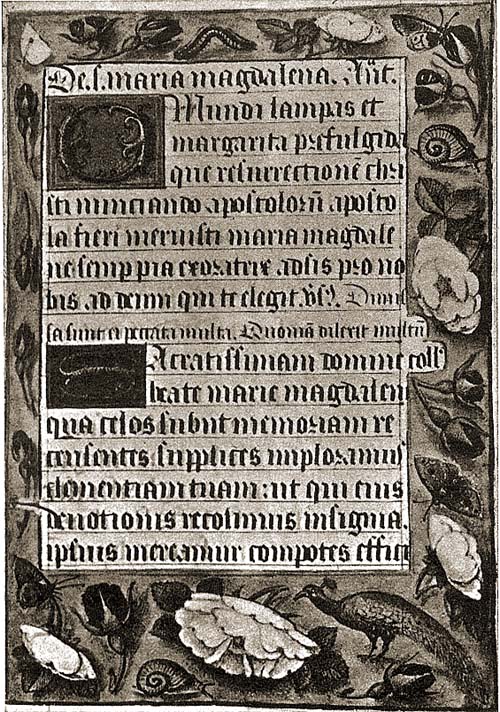 De s. maria magdalena. Añt.
O Mundi lampas et
margarita prefulgida
que resurrectionē chri
sti nunciando apostoloꝝ aposto
la fieri meruisti maria magdale
ne semp pia exoratrix adsis pro no
bis ad deum qui te elegit. Vs. Dimis
sa sunt ei peccata multa. Quoniā dilexit multū
Sacratissimam domine coll
beate marie magdalen
qua celos subiit memoriam re
censentes supplices imploramus
clementiam tuam: ut qui eius
deuotionis recolimus insignia.
ipsius mereamur compotes effici